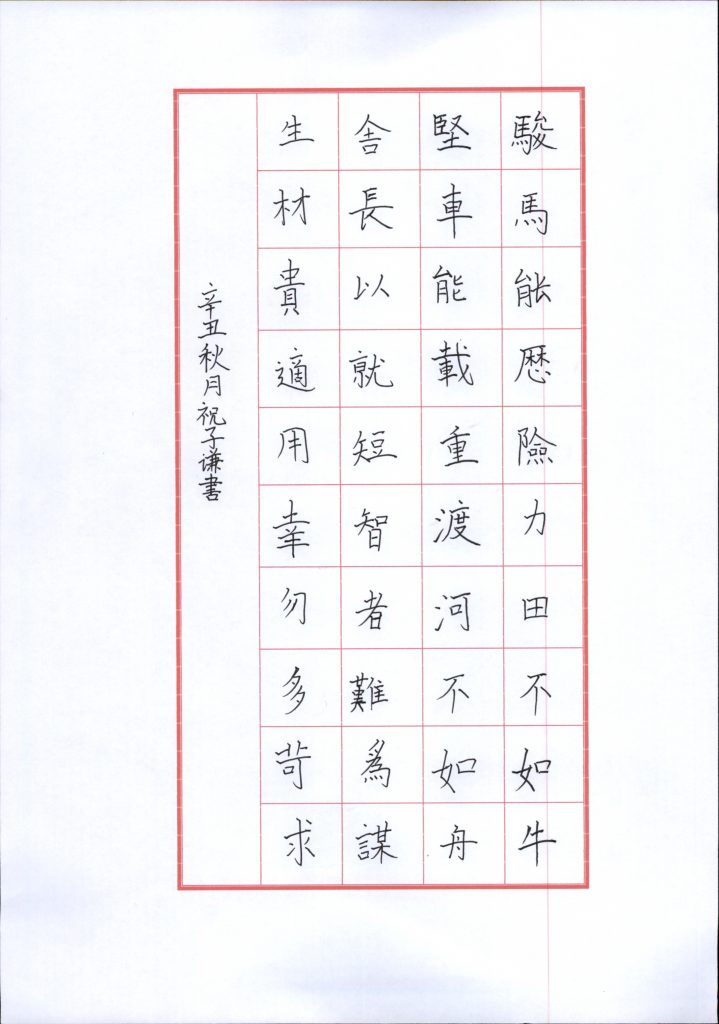 駿馬能歷險力田不如牛
堅車能載重渡河不如舟
舍長以就短智者難為謀
生材貴適用幸勿多苛求
辛丑秋月祝子谦書